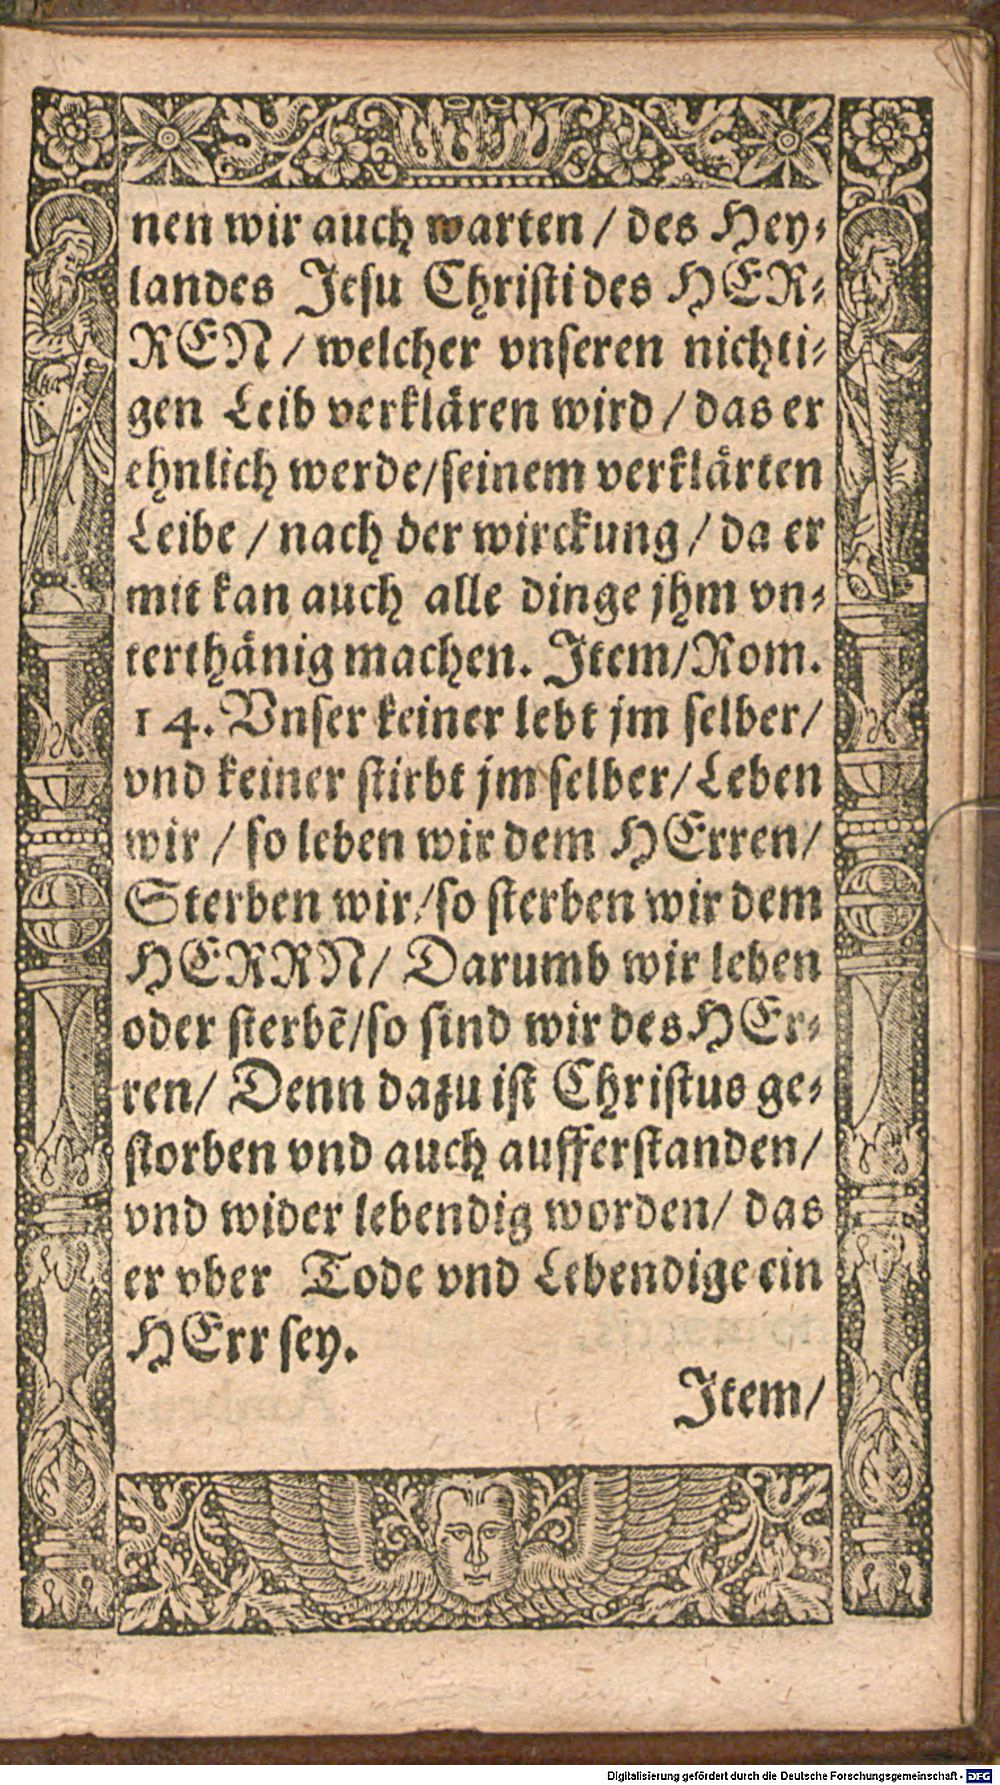 nen wir auch warten / des Hey⸗
landes Jesu Christi des HER⸗
REN / welcher vnseren nichti⸗
gen Leib verklären wird / das er
ehnlich werde/seinem verklärten
Leibe / nach der wirckung / da er
mit kan auch alle dinge jhm vn⸗
terthänig machen. Item/Rom.
14. Vnser keiner lebt jm selber/
vnd keiner stirbt jm selber/Leben
wir / so leben wir dem HErren/
Sterben wir/so sterben wir dem
HERRN/ Darumb wir leben
oder sterbẽ/so sind wir des HEr⸗
ren/ Denn dazu ist Christus ge⸗
storben vnd auch aufferstanden/
vnd wider lebendig worden/ das
er vber Tode vnd Lebendige ein
HErr sey.
Item/
Digitalisierung gefördert durch die Deutsche Forschungsgemeinschaft - DFG